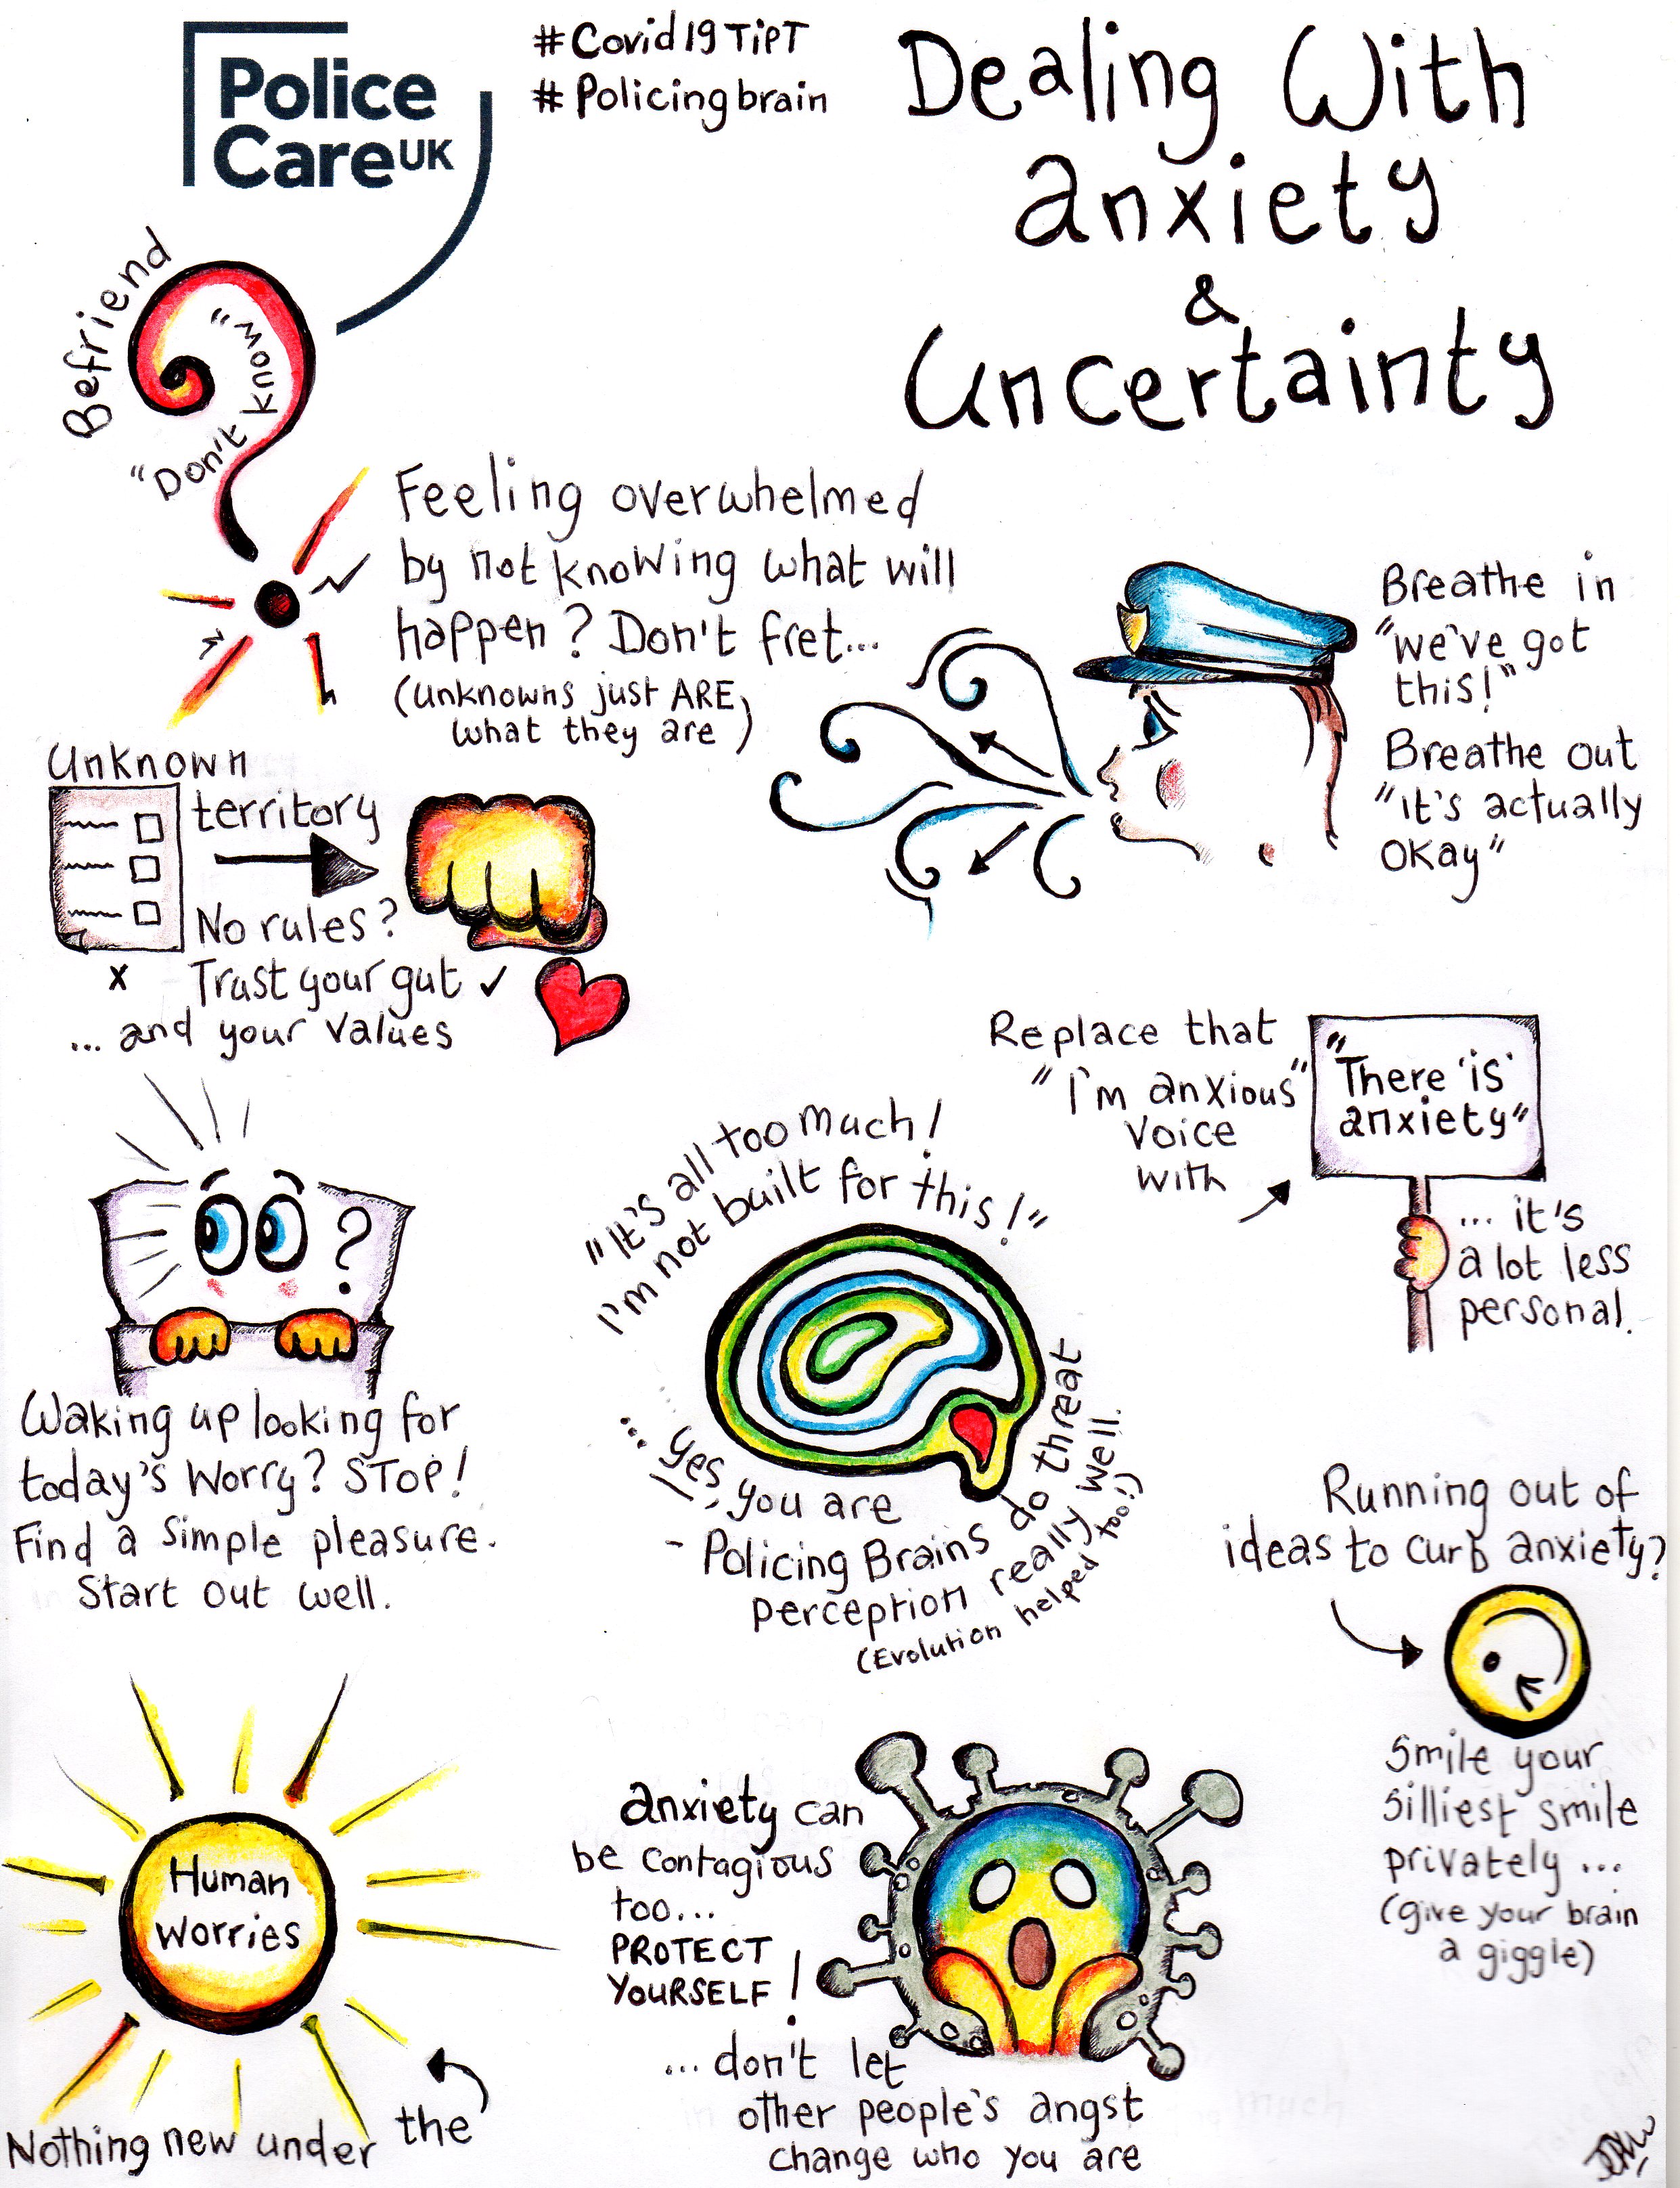 Police
Care UK
#Covid19TiPT
#Policingbrain
Dealing With
anxiety
&
Uncertainty
Befriend
"Don't know"
Feeling overwhelmed
by not knowing what will
happen? Don't fret...
(unknowns just ARE
what they are)
Breathe in
"we've got
this!"
Breathe out
"it's actually
okay"
Unknown
territory
No rules?
x Trust your gut ✓
... and your values
Replace that
"I'm anxious"
voice
with
"There 'is'
anxiety"
... it's
a lot less
personal.
?
Waking up looking for
today's worry? STOP!
Find a simple pleasure.
Start out well.
"It's all too much!
I'm not built for this!"
... yes, you are
- Policing Brains do threat
perception really well.
(Evolution helped too!)
Running out of
ideas to curb anxiety?
Smile your
silliest smile
privately ...
(give your brain
a giggle)
Human
worries
Nothing new under the
anxiety can
be contagious
too...
PROTECT
YOURSELF!
... don't let
other people's angst
change who you are